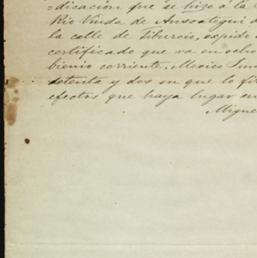 dicación que se hizo á la
Rio Viuda de Ansoategui d
la calle de Tiburcio, expido
certificado que va en ocho
bienio corriente. Mexico
setenta y dos en que lo fi
efectos que haya lugar en
Migue